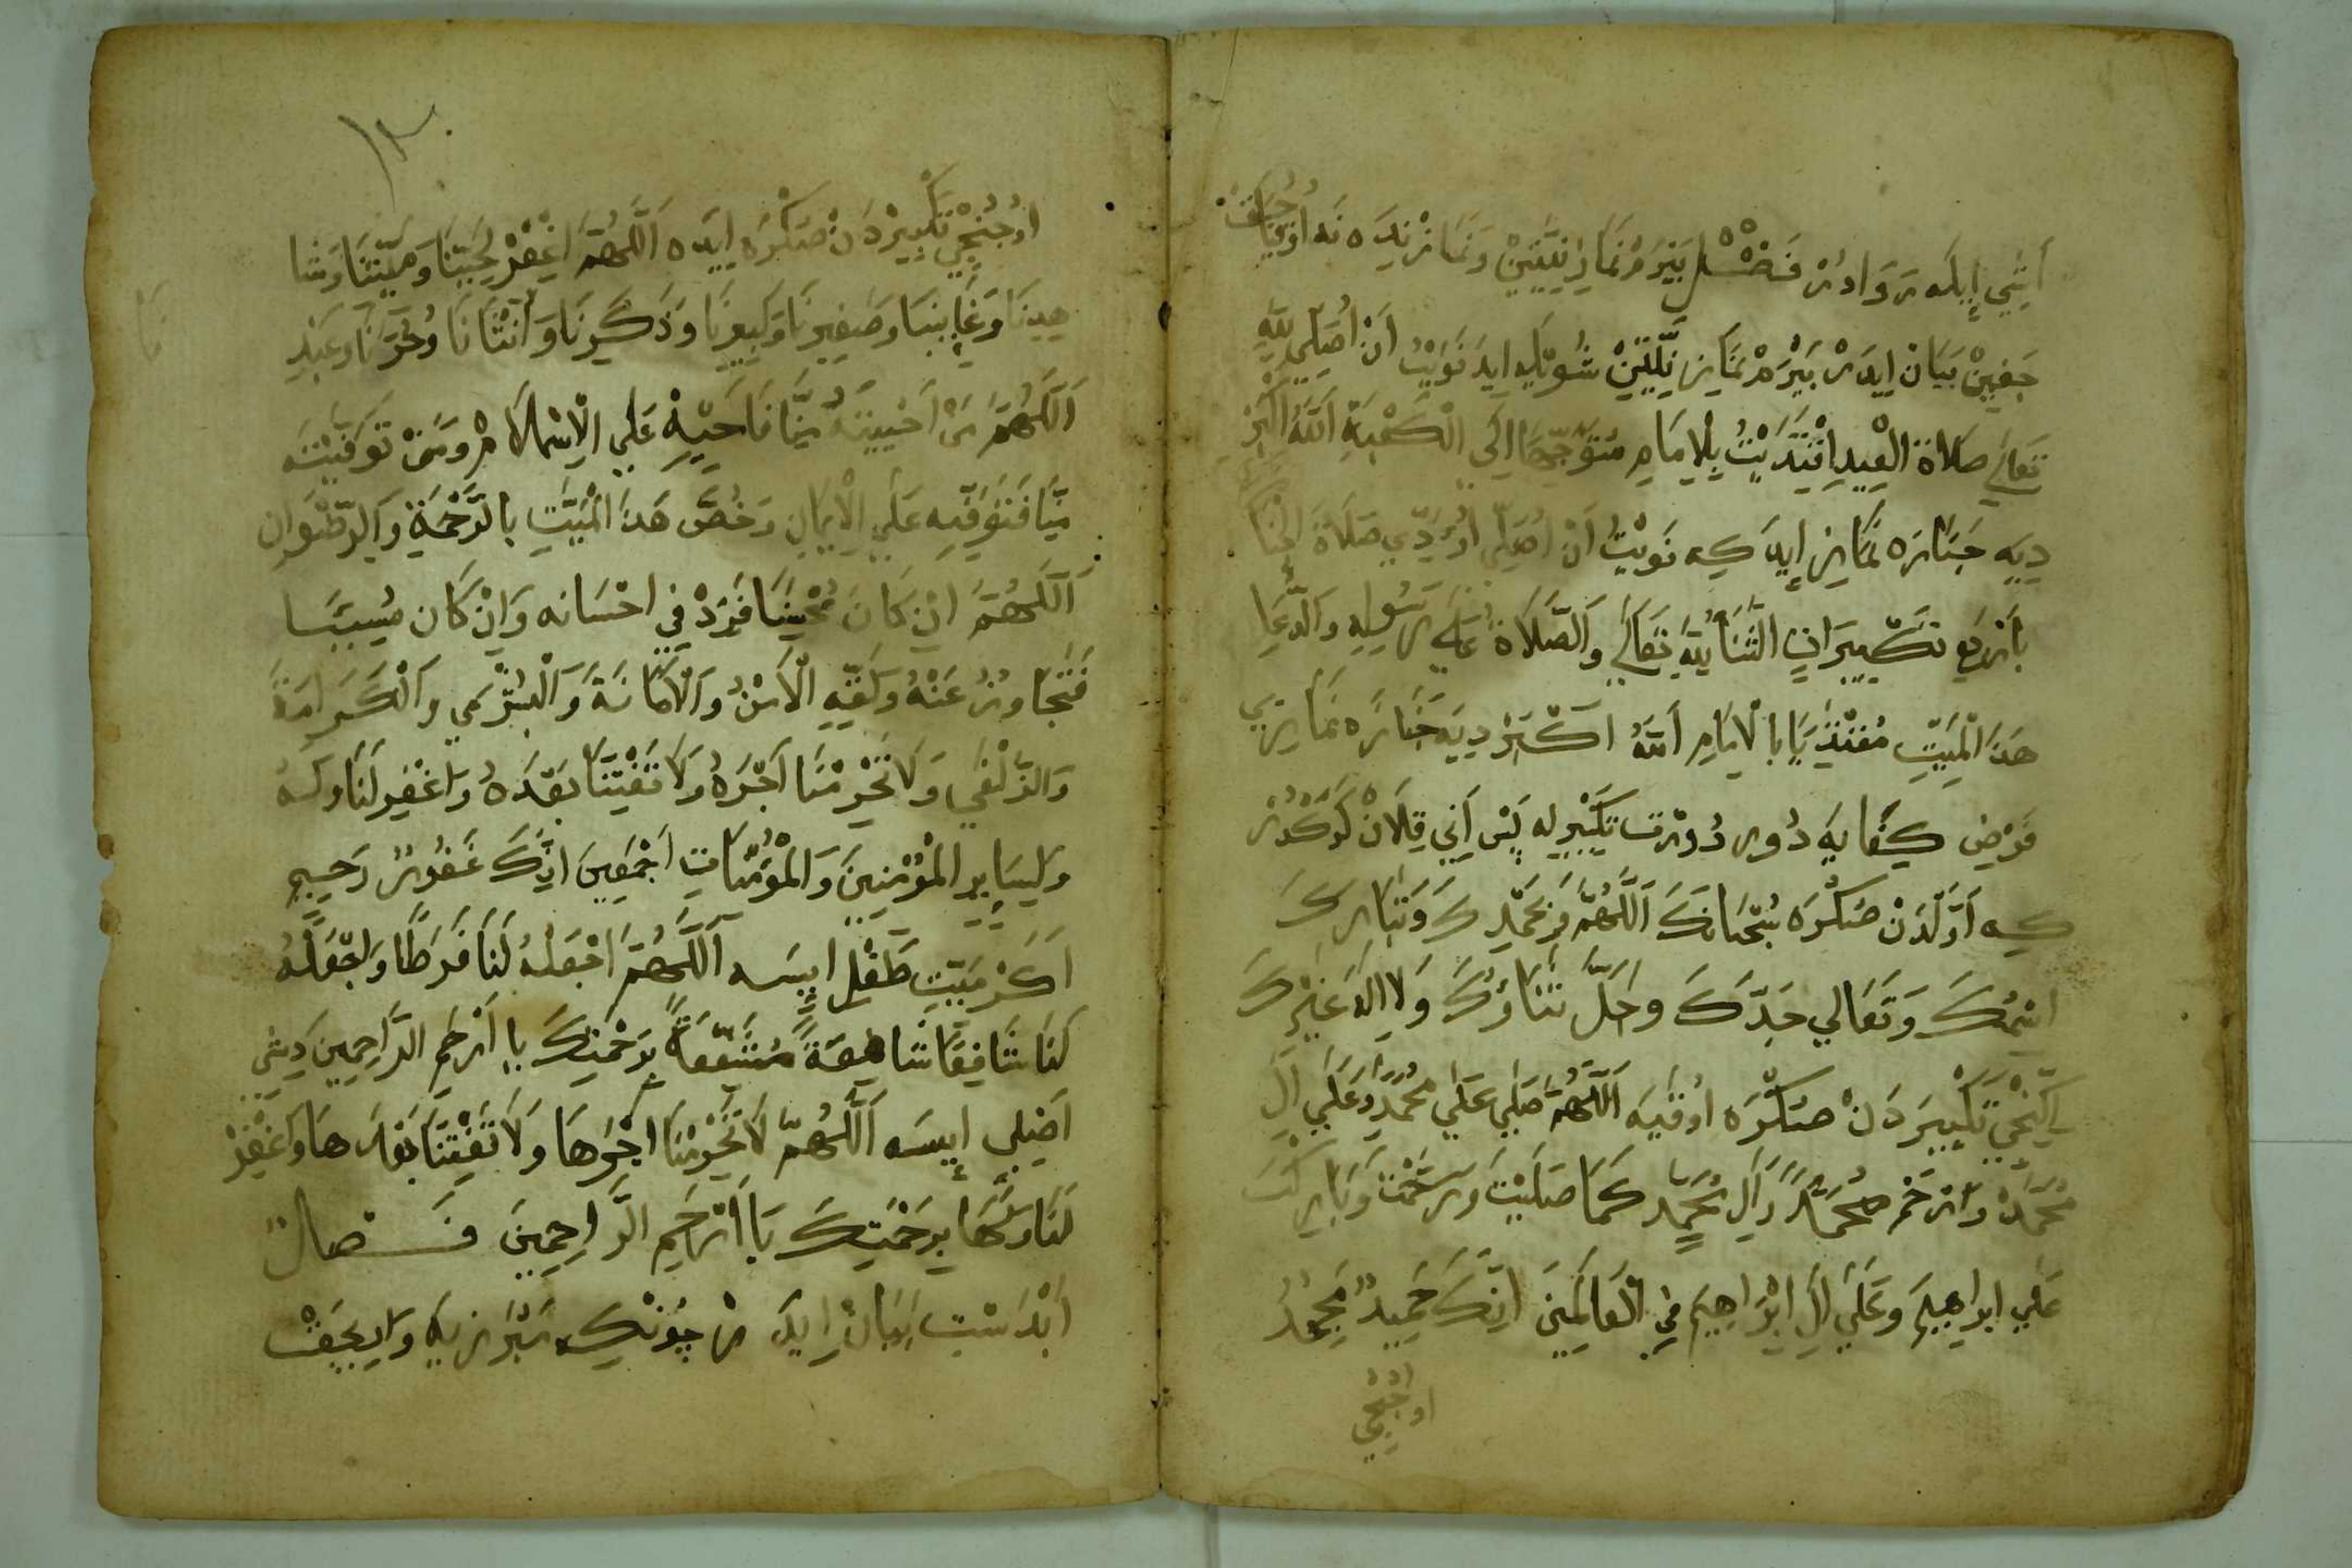 اَيْنِي اِيلَه رَوَادُرْ فَصْلٌ بَيْرَمْ نَمَازِ نِيَّتِيْنْ وَنَمَازْ نِيَدَه نَه اُوقُيَا
جَغِينْ بَيَانْ اِيدَرْ بَيْرَمْ نَمَازِ نِيَّتِينْ شُويْلَه ايدَ نَوَيْتُ اَنْ اُصَلِّي لِلّٰهِ
تَعَالَي صَلَاةَ الْعِيدِ اِقْتَدَيْتُ بِالْاِمَامِ مُتَوَجِّهًا اِلَي الْكَعْبَةِ اَللّٰهُ اَكْبَرْ
دِيَه جَنَازَه نَمَازِ اِيدَ كِه نَوَيْتُ اَنْ اُصَلِّي اُؤَدِّي صَلَاةَ الْجَنَا
بِاَرْبَعِ تَكْبِيرَاتٍ اَلثَّنَاءُ لِلّٰهِ تَعَالَي وَالصَّلَاةُ عَلَي رَسُولِهِ وَالدُّعَا
هَذَا الْمَيِّتِ مُقْتَدِيًا بِالْاِمَامِ اَللّٰهُ اَكْبَرْ دِيَه جَنَازَه نَمَازِي
فَرْضِ كِفَايَه دُور دُورْت تَكْبِيرْ لَه پَسْ اَنِي قِلَانْ كَرَكْدُرْ
كِه اَوَّلْدَنْ صَكْرَه سُبْحَانَكَ اَللّٰهُمَّ وَبِحَمْدِكَ وَتَبَارَكَ
اسْمُكَ وَتَعَالَي جَدُّكَ وَجَلَّ ثَنَاؤُكَ وَلَا اِلٰهَ غَيْرُكَ
اِكِنْجِي تَكْبِيرَدَنْ صَكْرَه اُوقُيَه اَللّٰهُمَّ صَلِّي عَلَي مُحَمَّدٍ وَعَلَي اٰلِ
مُحَمَّدْ وَارْحَمْ مُحَمَّدًا وَاٰلِ مُحَمَّدٍ كَمَا صَلَّيْتَ وَرَحَّمْتَ وَبَارَكْتَ
عَلَي ابراهِيمَ وَعَلَي اٰلِ اِبْرَاهِيمَ فِي الْعَالَمِينَ اِنَّكَ حَمِيدٌ مَجِيدٌ
اوجُنْجِي
١٣
اوُجُنْجِي تَكْبِيرْدَنْ صَكْرَه ايدَه اَللّٰهُمَّ اغْفِرْ لِحَيِّنَا وَمَيِّتِنَا وَشَا
هِدِنَا وَغَايِبِنَا وَصَغِيرِنَا وَكَبِيرِنَا وَذَكَرِنَا وَاُنْثَانَا وَحُرِّنَا وَعَبْدِ
اَللّٰهُمَّ مَنْ اَحْيَيْتَهُ مِنَّا فَاَحْيِهِ عَلَي الْاِسْلَامْ وَمَنْ تَوَفَّيْتَهُ
مِنَّا فَتَوَفَّيهِ عَلَي الْاِيمَانِ وَخُصَّ هَذَا الْمَيِّتِ بِالرَّحْمَةِ وَالرِّضْوَانِ
اَللّٰهُمَّ اِنْ كَانَ مُحْسِنًا فَزِدْ فِي اِحْسَانِه وَاِنْ كَانَ مُسِيئًا
فَتَجَاوَزْ عَنْهُ وَلَقِّهِ الْاَمْنُ وَالْاَمَانَةَ وَالْبُشْرَي وَالْكَرَامَةَ
وَالزُّلْفَي وَلَا تَحْرِمْنَا اَجْرَهُ وَلَا تَفْتِنَّا بَعْدَهُ وَاغْفِرْ لَنَا وَلَهُ
وَلِسَايِرِ الْمُؤْمِنِينَ وَالْمُؤْمِنَاتِ اَجْمَعِينَ اِنَّكَ غَفُورٌ رَحِيمٌ
اَكَرْ مَيِّتِ طِفْلِ اِيسَه اَللّٰهُمَّ اَجْعَلْهُ لَنَا فَرَطًا وَاجْعَلْهُ
لَنَا شَافِعًا شَافِعَةً مُشَفَّعَةً بِرَحْمَتِكَ يَا اَرْحَمَ الرَّاحِمِينَ دِيشِي
اَصِيلِي اِيسَه اَللّٰهُمَّ لَا تَحْرِمْنَا اَجْرَهَا وَلَا تَفْتِنَّا بَعْدَهَا وَاغْفِرْ
لَنَا وَلَهَا بِرَحْمَتِكَ يَا اَرْحَمَ الرَّاحِمِينَ فَصْلٌ
اَبْدَسْتِ بَيَانْ اِيدَرْ چُونْكِه